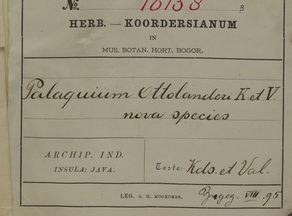 № 16138 β
HERB. — KOORDERSIANUM
IN
MUS. BOTAN. HORT. BOGOR.
Palaquium Ottolanderi K et V.
nova species
ARCHIP. IND.
INSULA: JAVA.
Teste: Kds. et Val.
LEG. S. H. KOORDERS.
VIII. 95